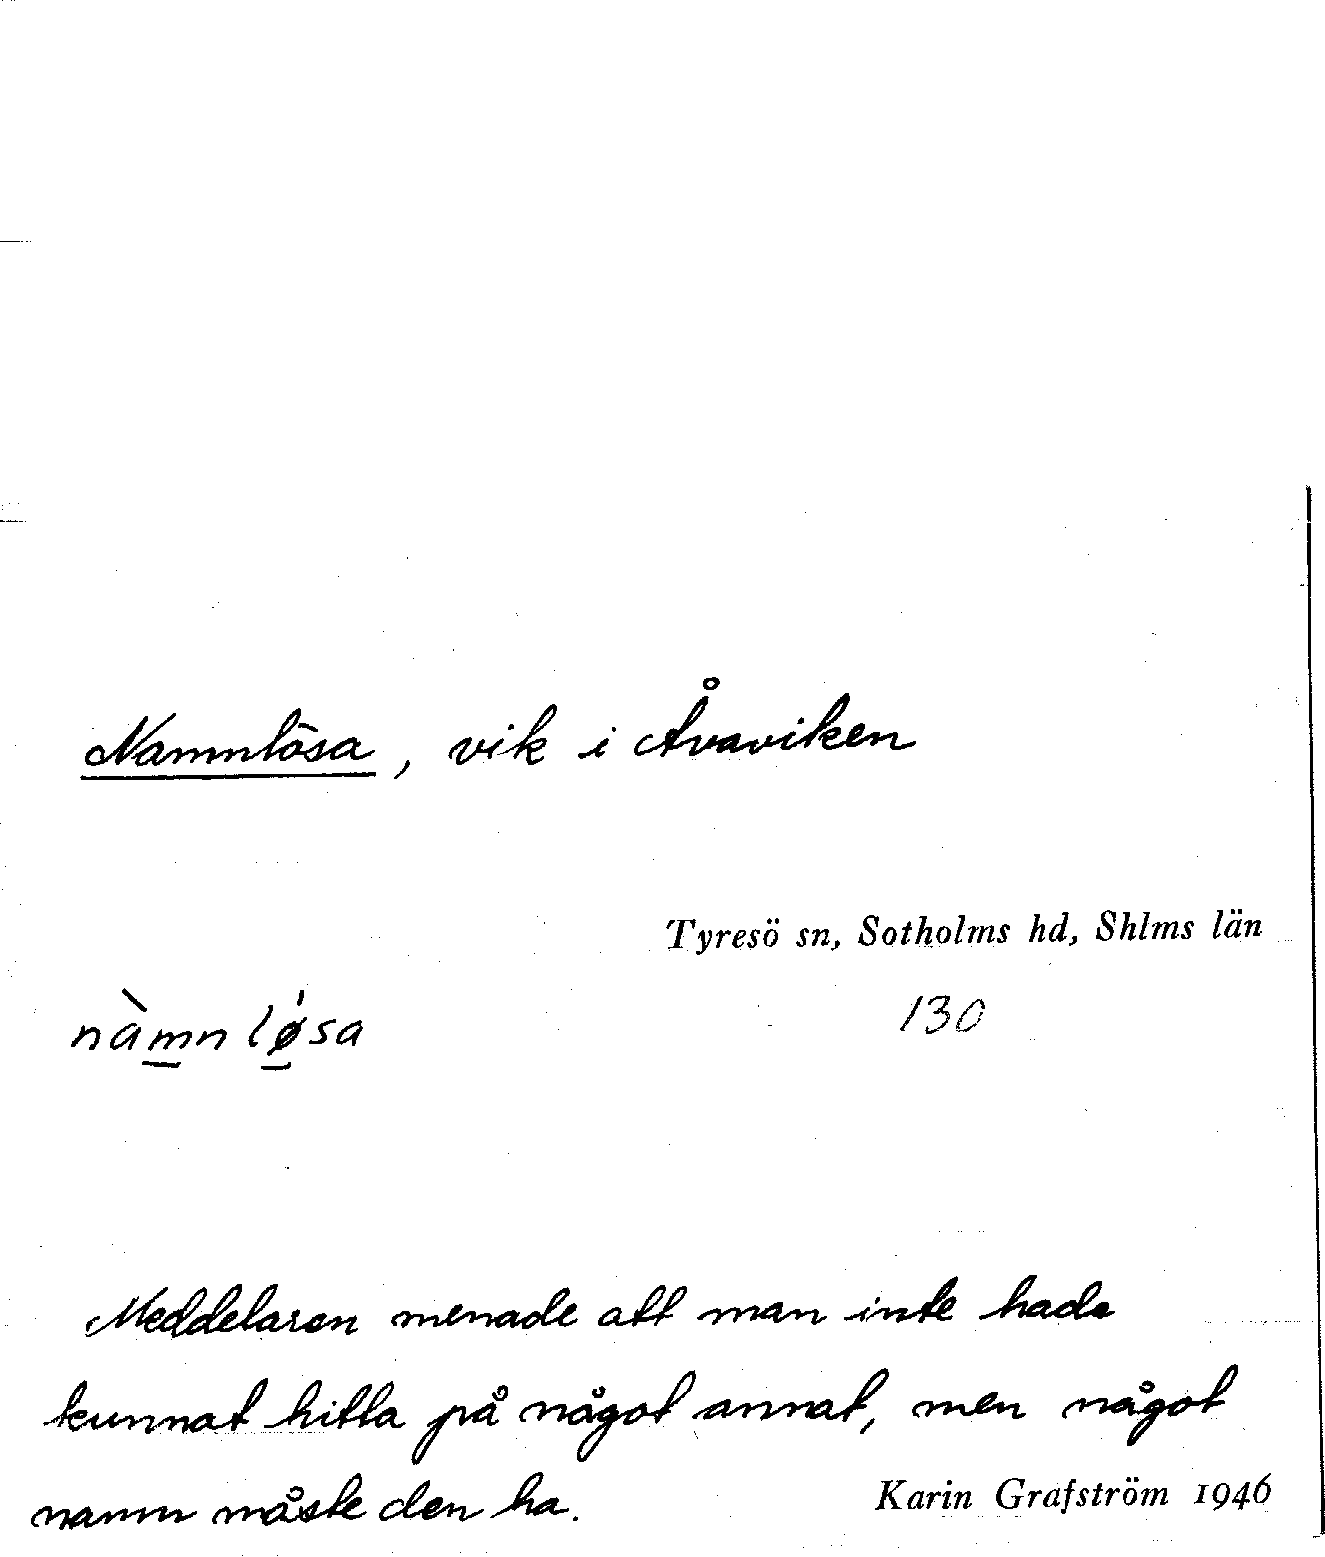 Namnlösa, vik i Åvaviken
Tyresö sn, Sotholms hd, Shlms län
130
nàmnlø̀sa
Meddelaren menade att man inte hade
kunnat hitta på något annat, men något
namn måste den ha.
Karin Grafström 1946